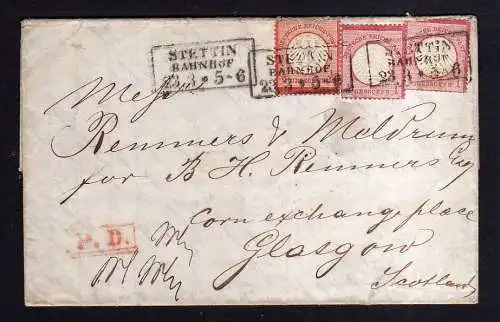 STETTIN
BAHNHOF
23.3 * 5-6
STETTIN
BAHNHOF
23.3 * 5-6
STETTIN
BAHNHOF
23.3 * 5-6
Mess
Remmers & Moldrum
for B H. Remmers Esq
Corn exchange place
Glasgow
Scotland
P. D.